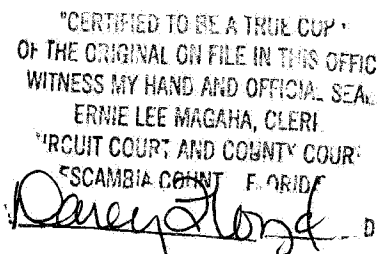 "CERTIFIED TO BE A TRUE COP
OF THE ORIGINAL ON FILE IN THIS OFFIC
WITNESS MY HAND AND OFFICIAL SEAL
ERNIE LEE MAGAHA, CLER
IRCUIT COURT AND COUNTY COUR
ESCAMBIA COUNT FLORID
D